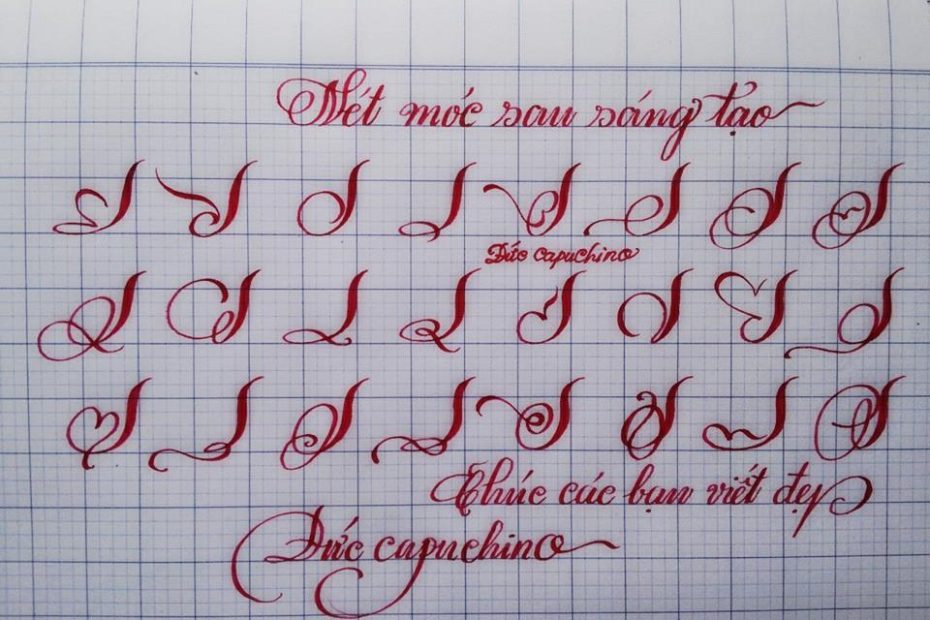 Nét móc sau sáng tạo
Đức capuchino
Chúc các bạn viết đẹp
Đức capuchino